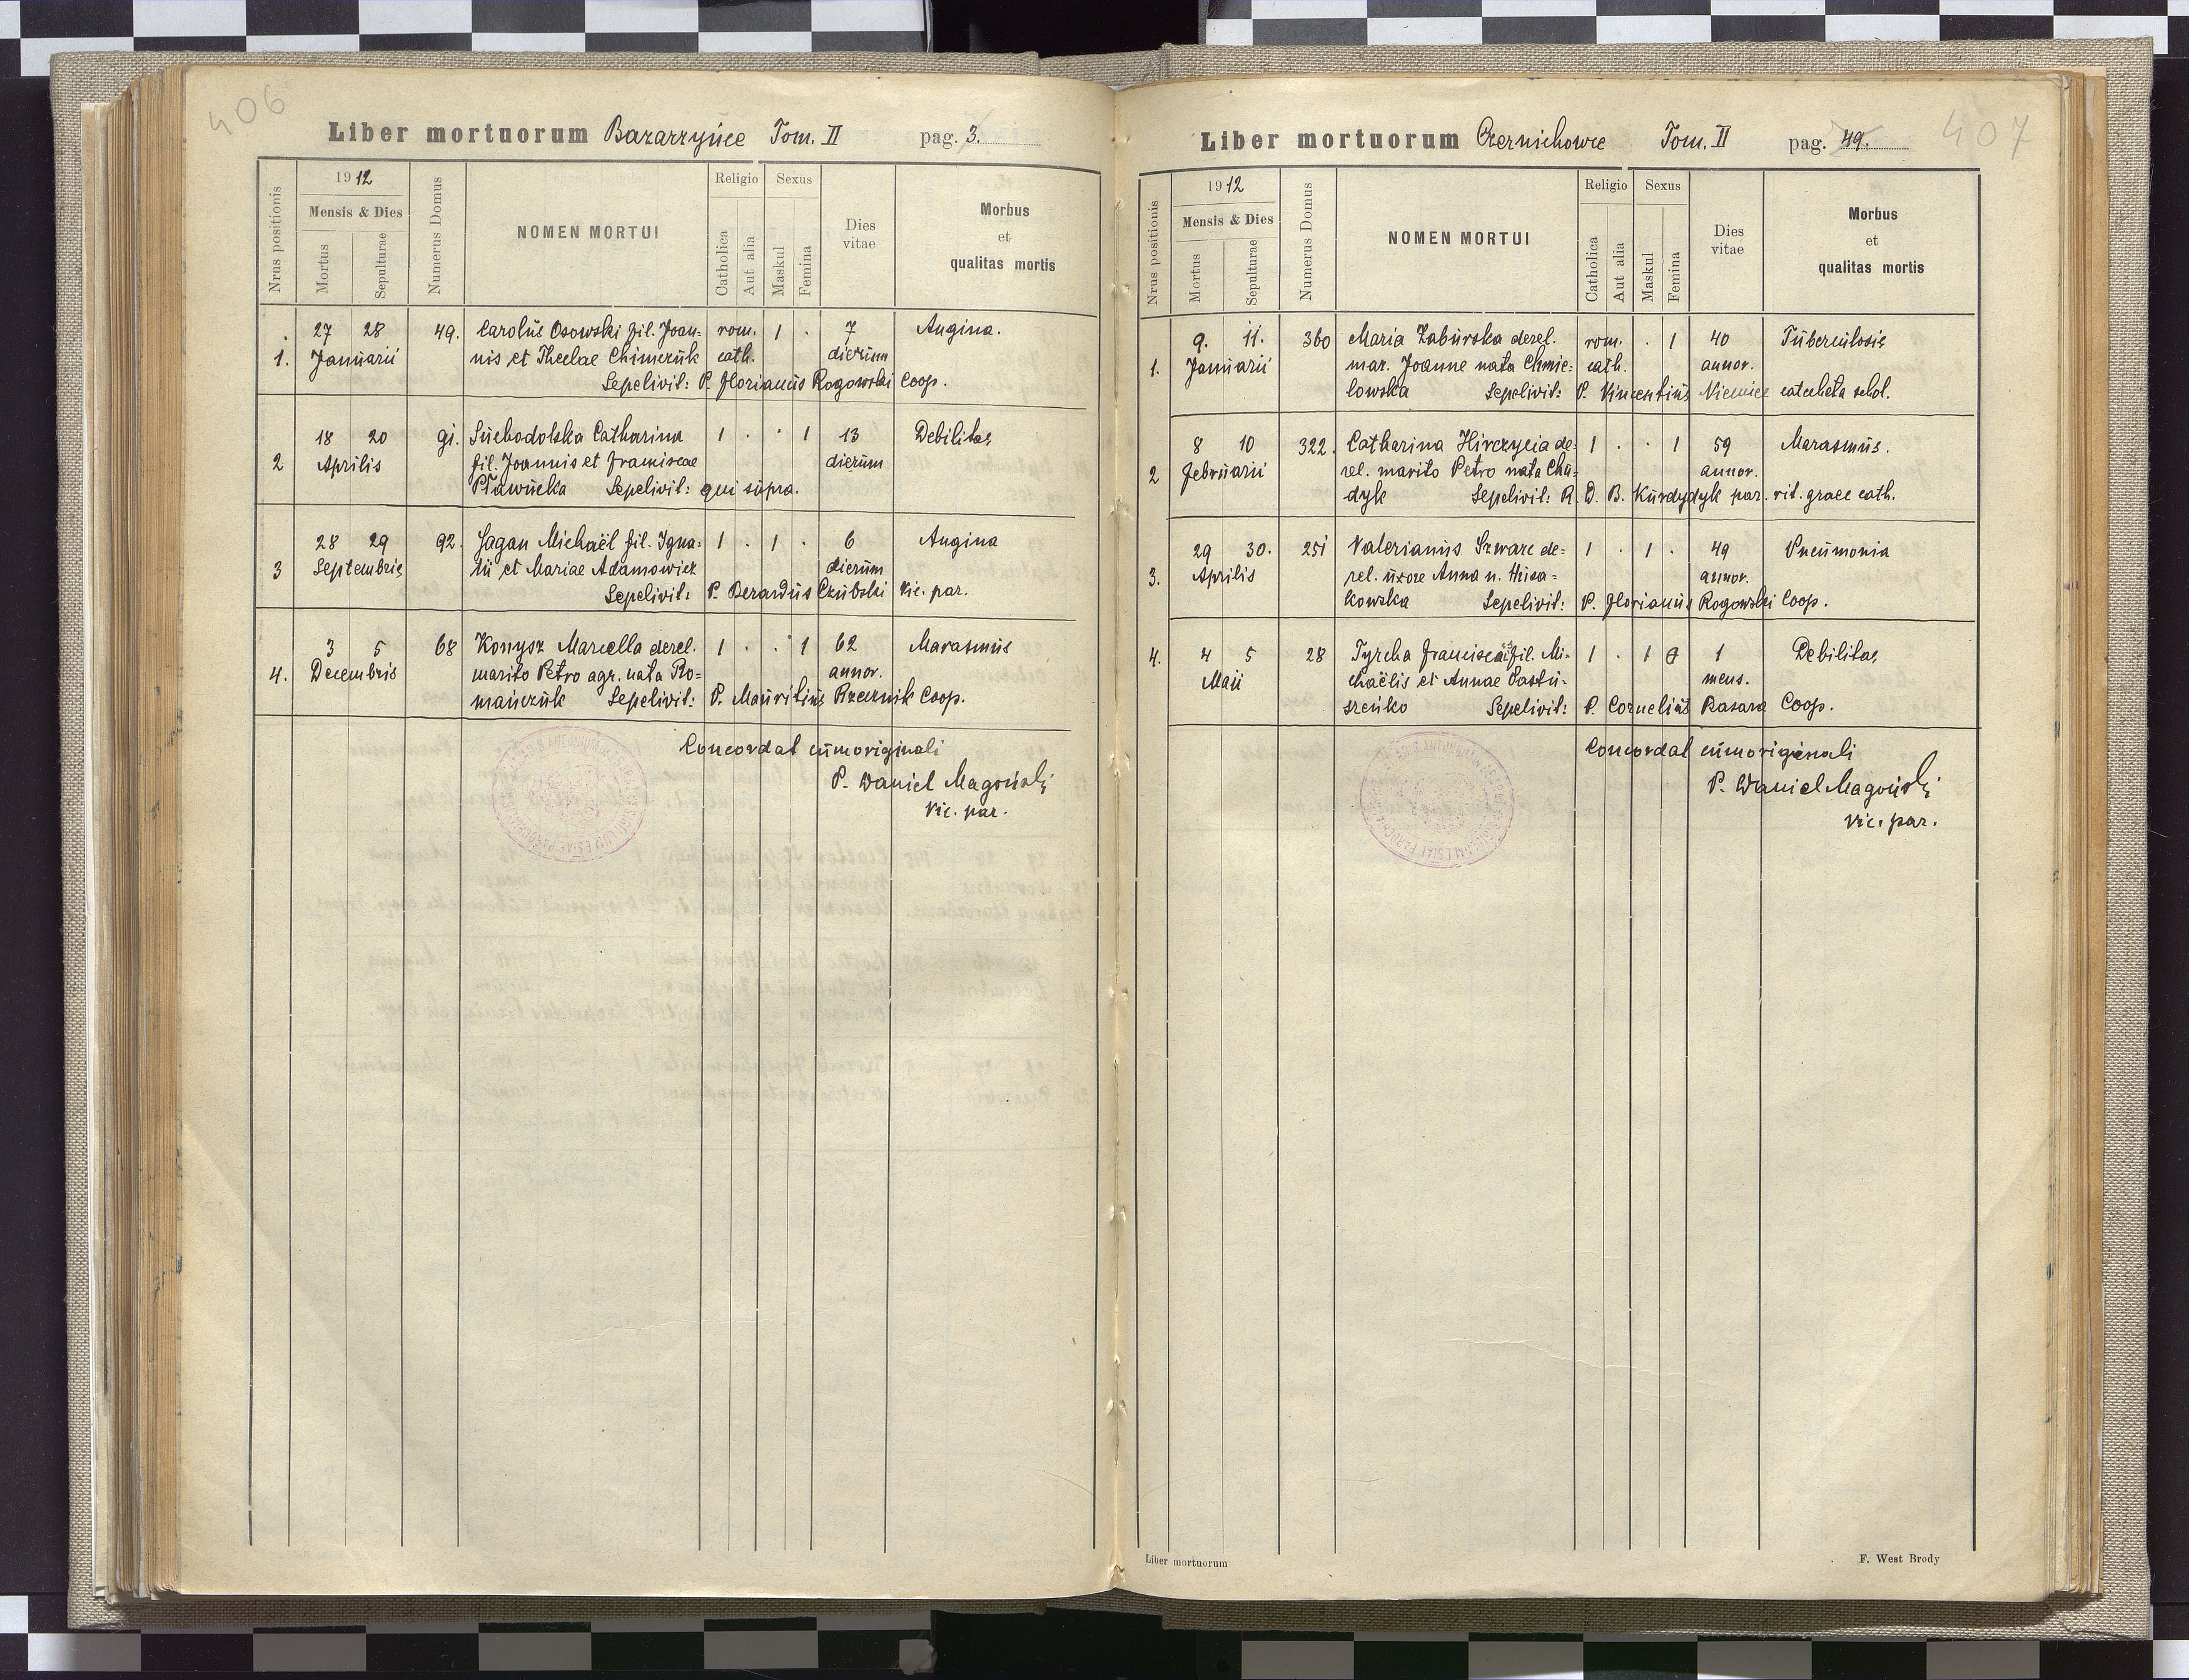 406
Liber mortuorum Bazarzyńce Tom. II pag. 3.
Nrus positionis
1912
Mensis & Dies
Mortus
Sepulturae
Numerus Domus
NOMEN MORTUI
Religio
Catholica
Aut alia
Sexus
Maskul
Femina
Dies
vitae
Morbus
et
qualitas mortis
27 28 49. Carolus Osowski fil. Joan= rom. 1 . 7 Angina.
1. Januarii nis et Theclae Chimczuk cath. dierum
Sepelivit: P. Florianus Rogowski Coop.
18 20 91. Suchodolska Catharina 1 . . 1 13 Debilitas
2 Aprilis fil. Joannis et Franciscae dierum
Pławucka Sepelivit: qui supra.
28 29 92. Gagan Michaël fil. Igna= 1 . 1 . 6 Angina
3 Septembris tii et Mariae Adamowicz dierum
Sepelivit: P. Berardus Czubski Vic. par.
3 5 68 Konysz Marcella derel. 1 . . 1 62 Marasmus
4. Decembris marito Petro agr. nata Ro= annor.
mańczuk Sepelivit: P. Mauritius Rzecznik Coop.
Concordat cum originali
P. Daniel Magoński
Vic. par.
407
Liber mortuorum Czernichowce Tom. II pag. 49.
Nrus positionis
1912
Mensis & Dies
Mortus
Sepulturae
Numerus Domus
NOMEN MORTUI
Religio
Catholica
Aut alia
Sexus
Maskul
Femina
Dies
vitae
Morbus
et
qualitas mortis
9. 11. 360 Maria Zaburska derel. rom. . 1 40 Tuberculosis
1. Januarii mar. Joanne nata Chmie= cath. annor.
lowska Sepelivit: P. Vincentius Niemiec catecheta schol.
8 10 322. Catharina Hirczycia de= 1 . . 1 59 Marasmus.
2 Februarii rel. marito Petro nata Chu= annor.
dyk Sepelivit: R. D. B. Kurdydyk par. rit. graec cath.
29 30. 251 Valerianus Szwarc de= 1 . 1 . 49 Pneumonia
3. Aprilis rel. uxore Anna n. Husa= annor.
kowska Sepelivit: P. Florianus Rogowski Coop.
4. 4 5 28 Tyrcha fil. Mi= 1 . 1 1 Debilitas
Maii chaëlis et Annae Pastu= mens.
szeńko Sepelivit: P. Cornelius Rasara Coop.
Concordat cum originali
P. Daniel Magoński
Vic. par.
Liber mortuorum
F. West Brody